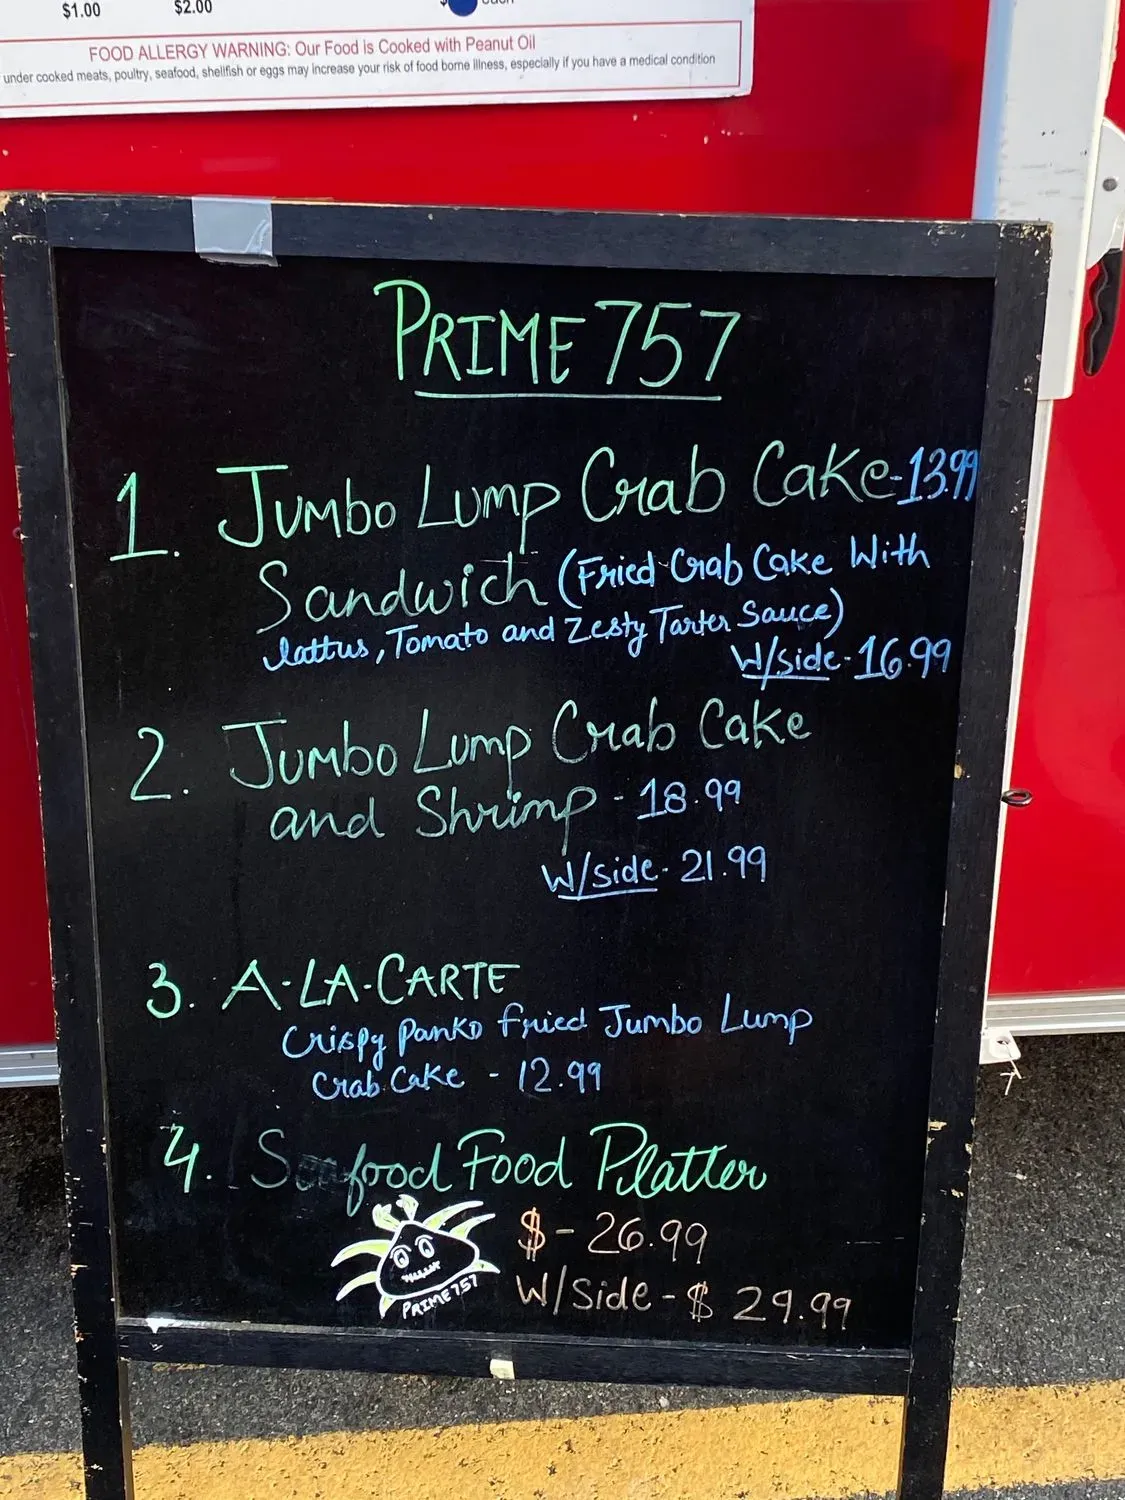 $1.00 $2.00
FOOD ALLERGY WARNING: Our Food is Cooked with Peanut Oil
under cooked meats, poultry, seafood, shellfish or eggs may increase your risk of food borne illness, especially if you have a medical condition
PRIME 757
1. Jumbo Lump Crab Cake-13.99
Sandwich (Fried Crab Cake With
lattus, Tomato and Zesty Tarter Sauce)
W/side-16.99
2. Jumbo Lump Crab Cake
and Shrimp - 18.99
W/side- 21.99
3. A-LA-CARTE
Crispy Panko fried Jumbo Lump
Crab Cake - 12.99
4. Seafood Food Platter
$- 26.99
W/Side - $ 29.99
PRIME 757